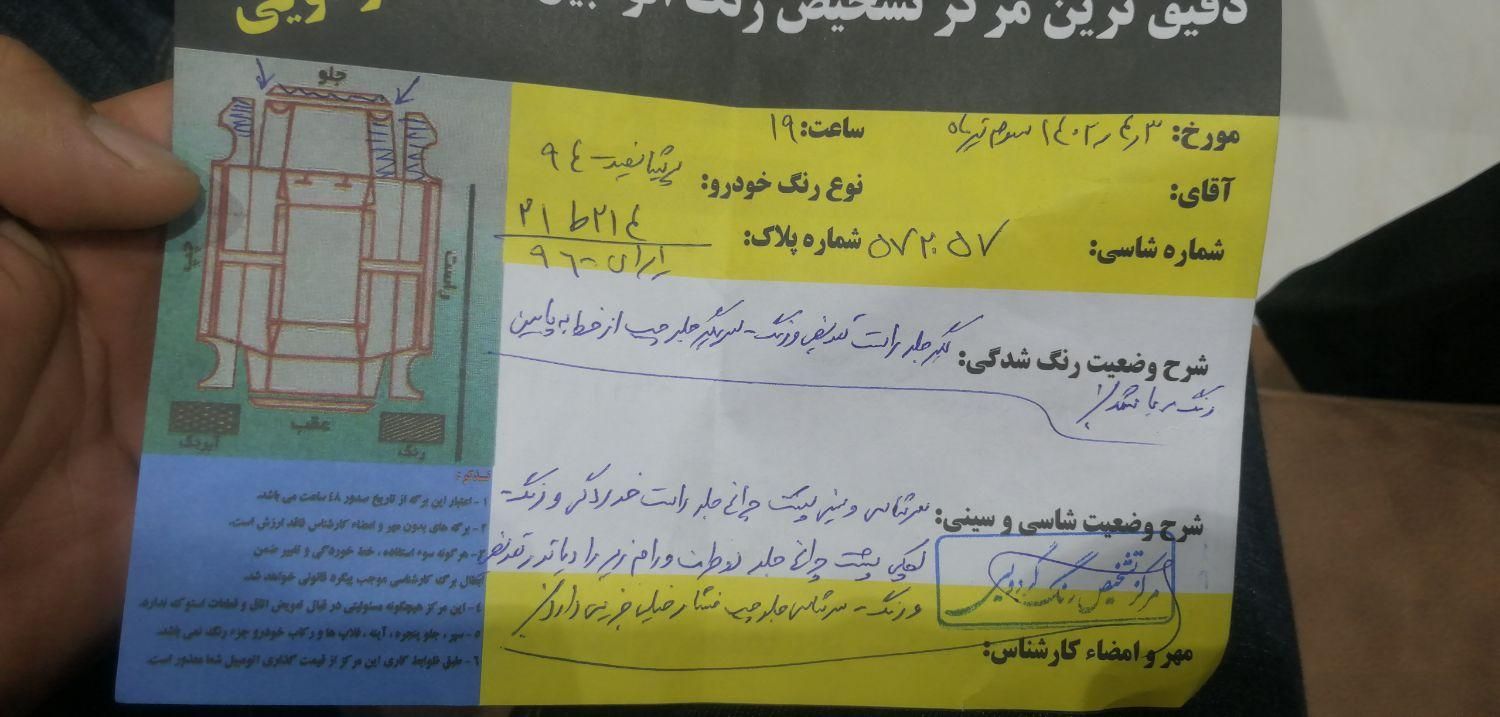 دقیق ترین مرکز تشخیص رنگ
مورخ: ۱۴۰۲٫۴٫۳ سوم تیرماه ساعت: ۱۹
آقای: نوع رنگ خودرو: سفید - ۹۴
شماره شاسی: ۵۷۲۰۵۷ شماره پلاک: ۲۱ ط ۲۱۴
ایران - ۹۶
شرح وضعیت رنگ شدگی: گلگیر جلو راست تعویض و رنگ - گلگیر جلو چپ از خط به پایین
رنگ می باشد
شرح وضعیت شاسی و سینی: سرشاسی و سینی پشت چراغ جلو راست خوردگی و رنگ -
لچکی پشت چراغ جلو دو طرف و رام زیر رادیاتور تعویض
و رنگ - سرشاسی جلو چپ فشار خیلی جزیی دارد
مرکز تشخیص رنگ
مهر و امضاء کارشناس:
جلو
چپ
راست
عقب
آبرنگ
رنگ
تذکر:
۱ - اعتبار این برگه از تاریخ صدور ۴۸ ساعت می باشد.
۲ - برگه های بدون مهر و امضاء کارشناس فاقد ارزش است.
۳ - هرگونه سوء استفاده، خط خوردگی و تغییر ضمن
انتقال برگ کارشناسی موجب پیگرد قانونی خواهد شد.
۴ - این مرکز هیچگونه مسئولیتی در قبال تعویض اتاق و قطعات استوک ندارد.
۵ - سپر، جلو پنجره، آینه، فلاپ ها و رکاب خودرو جزء رنگ نمی باشد.
۶ - طبق ظوابط کاری این مرکز از قیمت گذاری اتومبیل شما معذور است.